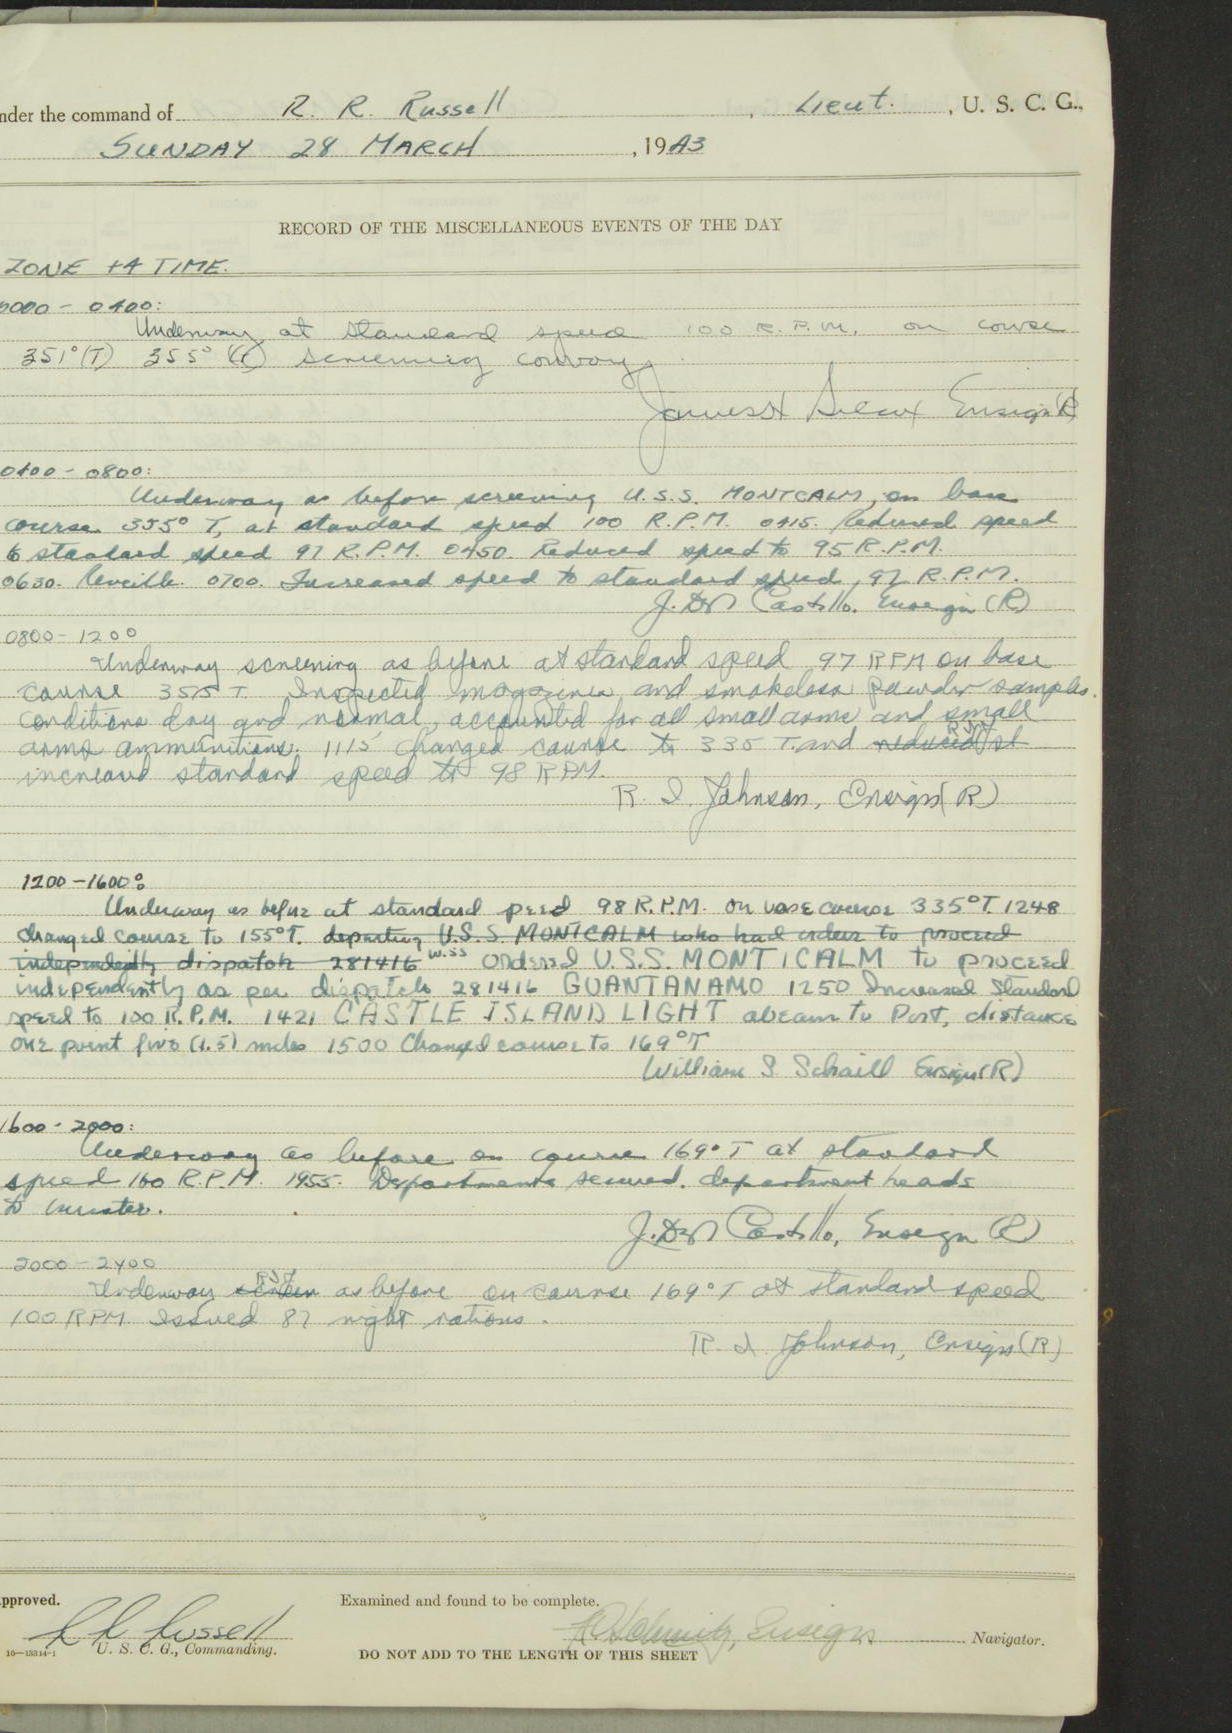 nder the command of R. R. Russell , Lieut. , U. S. C. G.,
SUNDAY 28 MARCH , 1943
RECORD OF THE MISCELLANEOUS EVENTS OF THE DAY
ZONE +4 TIME.
0000 - 0400:
Underway at standard speed 100 R.P.M. on course
351°(T) 355° screening convoy.
James Ensign (R)
0400 - 0800:
Underway as before screening U.S.S. MONTCALM, on base
course 355° T, at standard speed 100 R.P.M. 0415. Reduced speed
to standard speed 97 R.P.M. 0450. Reduced speed to 95 R.P.M.
0630. Reveille. 0700. Increased speed to standard speed, 97 R.P.M.
J. Castillo, Ensign (R)
0800 - 1200
Underway screening as before at standard speed 97 RPM on base
course 355 T. Inspected magazines and smokeless powder samples.
Conditions dry and normal, accounted for all small arms and small
arms ammunitions. 1115 changed course to 335 T. and reduced st
increased standard speed to 98 RPM.
R. I. Johnson, Ensign (R)
1200 - 1600:
Underway as before at standard speed 98 R.P.M. on base course 335°T. 1248
changed course to 155°T. departing U.S.S. MONTCALM who had orders to proceed
independently dispatch 281416 W.SS Ordered U.S.S. MONTICALM to proceed
independently as per dispatch 281416 GUANTANAMO 1250 Increased Standard
speed to 100 R.P.M. 1421 CASTLE ISLAND LIGHT abeam to Port, distance
one point five (1.5) miles 1500 Changed course to 169°T
William S. Schaill Ensign (R)
1600 - 2000:
Underway as before on course 169° T at standard
speed 100 R.P.M. 1955. Departments secured, department heads
to muster.
J. Castillo, Ensign (R)
2000 - 2400
Underway screen as before on course 169°T at standard speed
100 RPM. Issued 87 night rations.
R. I. Johnson, Ensign (R)
pproved.
Examined and found to be complete.
R R Russell
U. S. C. G., Commanding.
Schmitz, Ensign Navigator.
10—13314-1
DO NOT ADD TO THE LENGTH OF THIS SHEET